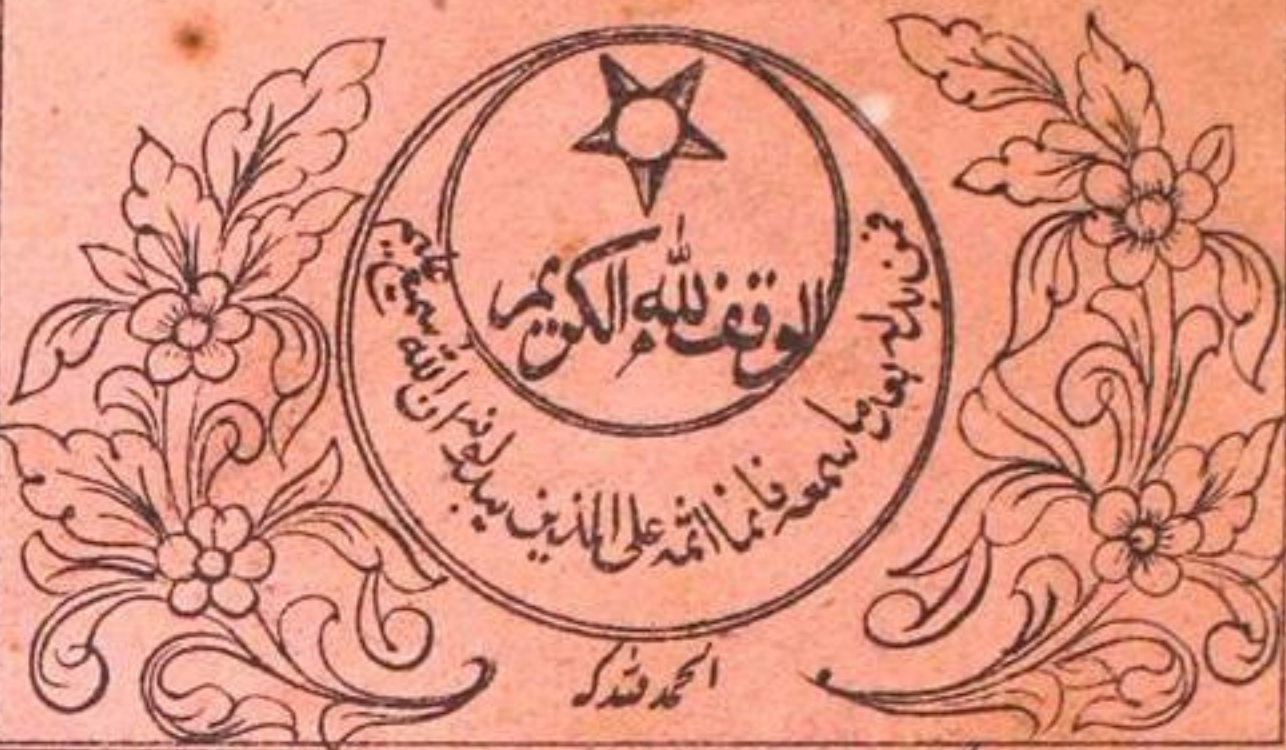 الوقف للّٰه الكريم
فمن بدله بعد ما سمعه فانما اثمه على الذين يبدلونه ان الله سميع عليم
الحمد للّٰه كہ